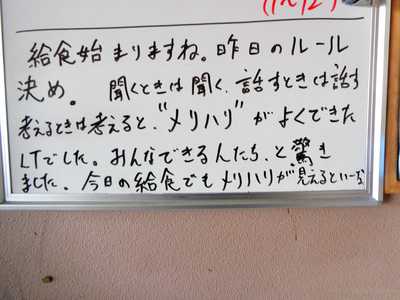 給食始まりますね。昨日のルール
決め。 聞くときは聞く、話すときは話す
考えるときは考えると、"メリハリ"がよくできた
LTでした。みんなできる人たち、と驚き
ました。今日の給食でもメリハリが見えるといーな